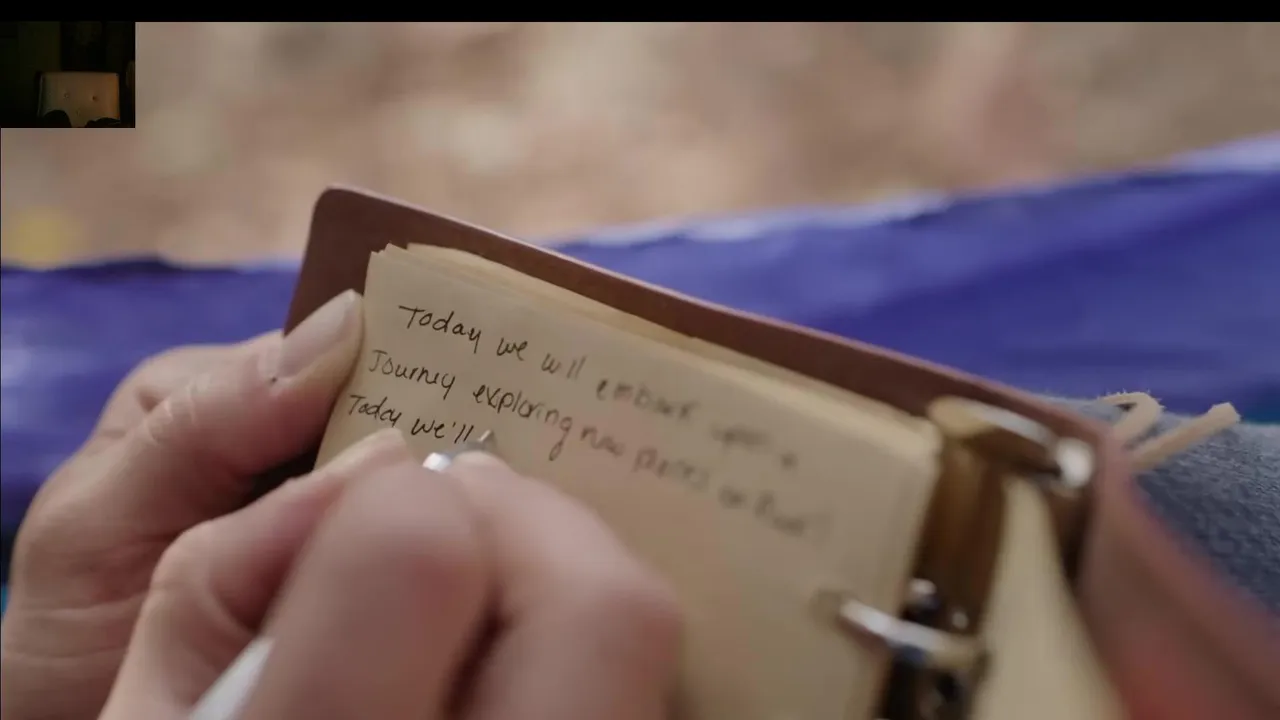 Today we will embark upon a
Journey exploring new places on foot!
Today we'll